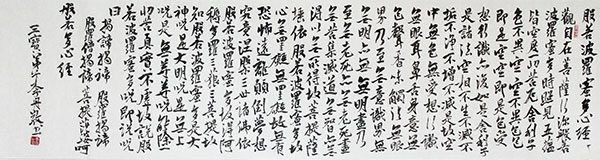 般若波羅蜜多心經
觀自在菩薩行深般若
波羅蜜多時照見五蘊
皆空度一切苦厄舍利子
色不異空空不異色
色即是空空即是色受
想行識亦復如是舍利子
是諸法空相不生不滅不
垢不淨不增不減是故空
中無色無受想行識
無眼耳鼻舌身意無
色聲香味觸法無眼
界乃至無意識界無
無明亦無無明盡乃
至無老死亦無老死盡
無苦集滅道無智亦無
得以無所得故菩提薩
埵依般若波羅蜜多故
心無罣礙無罣礙故無有
恐怖遠離顛倒夢想
究竟涅槃三世諸佛依
般若波羅蜜多故得阿
耨多羅三藐三菩提故
知般若波羅蜜多是大
神咒是大明咒是無上
咒是無等等咒能除
一切苦真實不虛故說般
若波羅蜜多咒即說咒
曰
揭諦揭諦 般羅揭諦
般羅僧揭諦 菩提薩婆訶
般若多心經